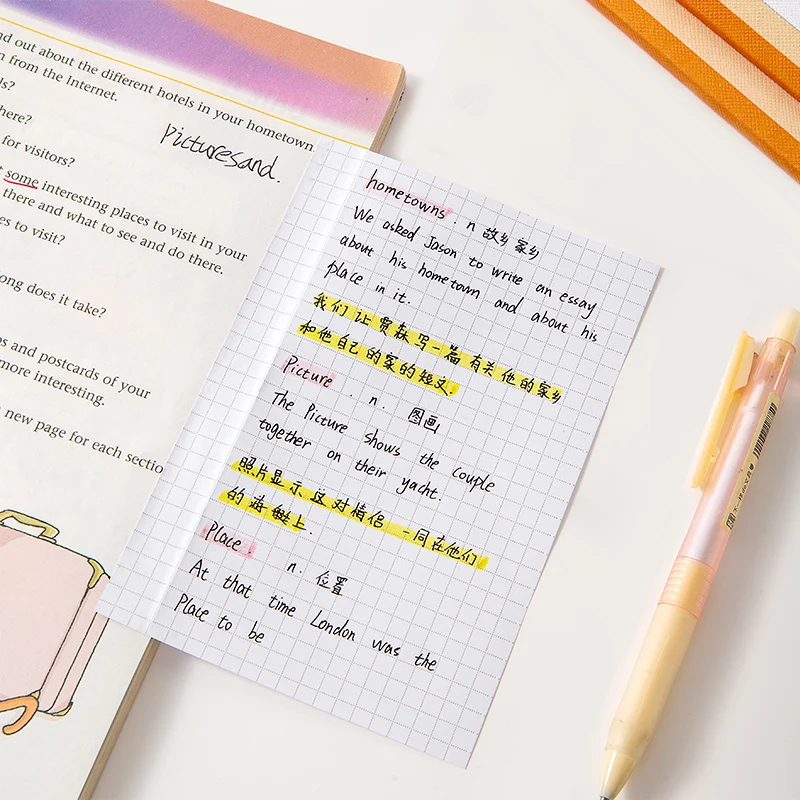 nd out about the different hotels in your hometown
n from the Internet.
ls?
here?
for visitors?
some interesting places to visit in your
there and what to see and do there.
es to visit?
ong does it take?
ps and postcards of your
more interesting.
new page for each sectio
Picturesand.
hometowns . n 故乡 家乡
We asked Jason to write an essay
about his hometown and about his
place in it.
我们让贾森写一篇有关他的家乡
和他自己的家的短文.
Picture . n. 图画
The Picture shows the couple
together on their yacht.
照片显示这对情侣一同在他们
的游艇上.
Place. n. 位置
At that time London was the
Place to be